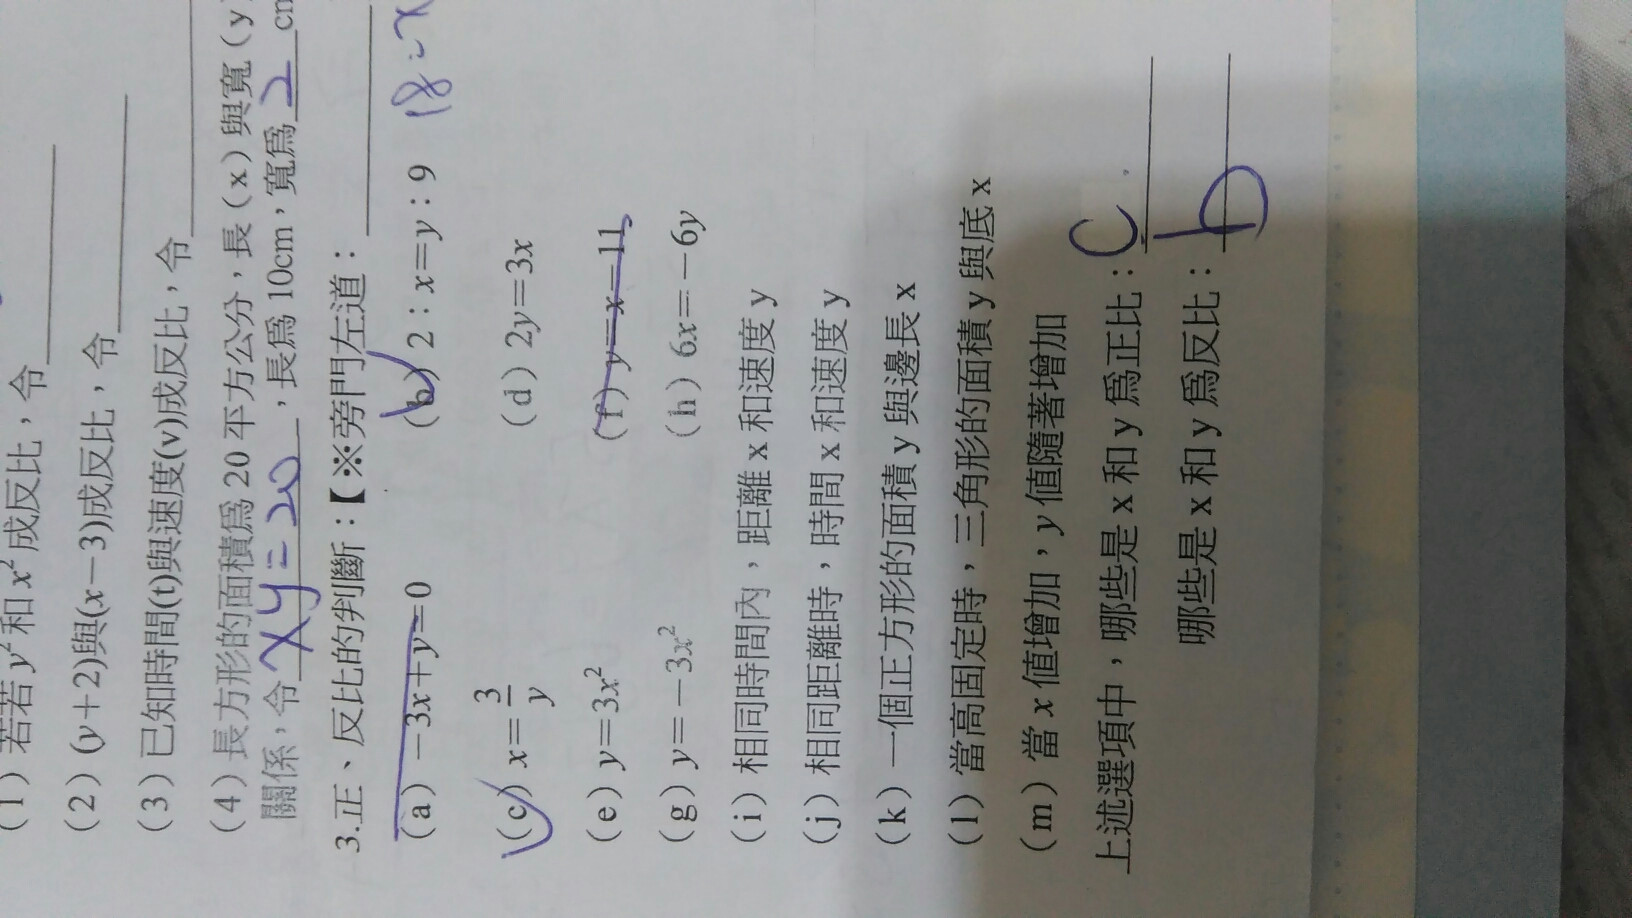 (1) 若若y²和x²成反比，令
(2) (y+2)與(x−3)成反比，令
(3) 已知時間(t)與速度(v)成反比，令
(4) 長方形的面積為 20 平方公分，長(x)與寬(y
關係，令 xy=20，長為 10cm，寬為 2 cm
3.正、反比的判斷：【※旁門左道：
(a) −3x+y=0 (b) 2：x=y：9 18=x
(c) x=3/y (d) 2y=3x
(e) y=3x² (f) y=x−11
(g) y=−3x² (h) 6x=−6y
(i) 相同時間內，距離 x 和速度 y
(j) 相同距離時，時間 x 和速度 y
(k) 一個正方形的面積 y 與邊長 x
(l) 當高固定時，三角形的面積 y 與底 x
(m) 當 x 值增加，y 值隨著增加
上述選項中，哪些是 x 和 y 為正比：c
哪些是 x 和 y 為反比：b